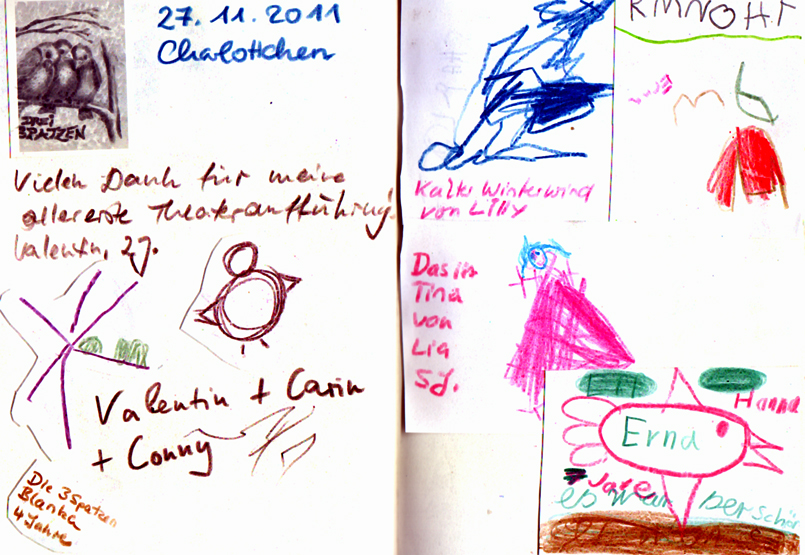 27.11.2011
Charlottchen
DREI
SPATZEN
Vielen Dank für meine
allererste Theateraufführung.
Valentin, 2J.
Valentin + Carin
+ Conny
Die 3 Spatzen
Blanka
4 Jahre
KMNOHT
Kalter Winterwind
von Lilly
Das ist
Tina
von
Lia
5J.
Hanna
Erna
Jale
es war